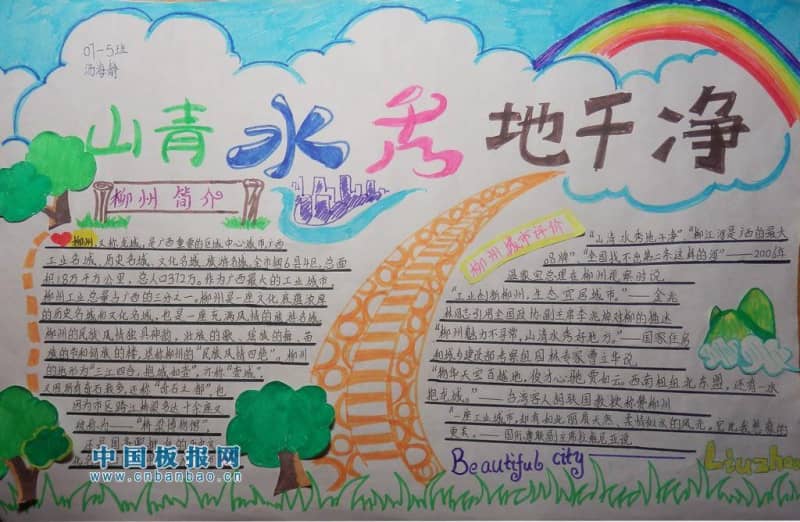 07-5班
汤海静
山青水秀地干净
柳州简介
柳州又称龙城,是广西重要的区域中心城市,广西
工业名城,历史名城,文化名城,旅游名城,全市辖6县4区,总面
积1.8万平方公里,总人口372万。作为广西最大的工业城市,
柳州工业总量占广西的三分之一,柳州是一座文化底蕴浓厚
的历史名城和文化名城,也是一座充满风情的旅游名城,
柳州的民族风情独具神韵,壮族的歌、瑶族的舞、苗
族的节和侗族的楼,堪称柳州的“民族风情四绝”。柳州
的地形为“三江四合,抱城如壶”,
又因所有奇石最多,还称“奇石之都”,也
因为市区跨江桥梁多达十余座又
被称为——“桥梁博物馆”,
柳州城市评价
“山清水秀地干净”“柳江河是广西的最大
品牌”“全国找不出第二条这样的河”——2005年
温家宝总理在柳州视察时说
“工业创新柳州,生态宜居城市。”——
“柳州魅力不寻常,山清水秀好地方。”——国家住房
和城乡建设部考察组园林专家曹
“物华天宝百越地,
抱龙城。”——台湾客人
“一座工业城市,却有如此丽质天然、柔情似水的风光,它比我想象的
更美。——国际
Beautiful city
Liuzhou
中国板报网
www.cnbanbao.cn